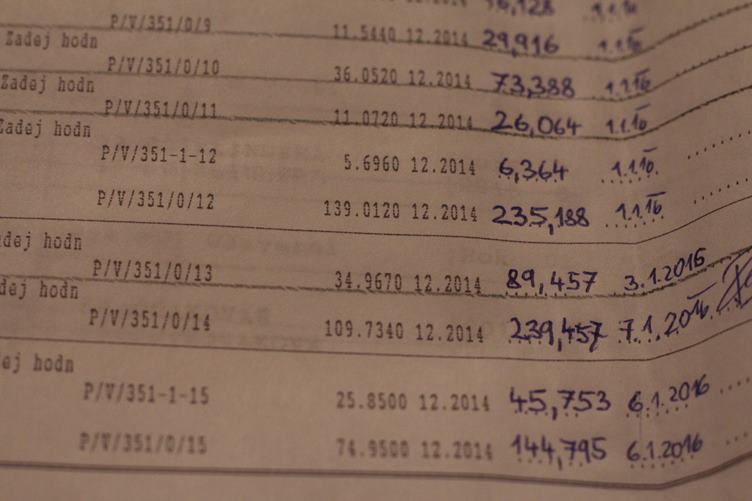 16,128 1.1.16
P/V/351/0/9 11.5440 12.2014 29,916 1.1.16
Zadej hodn
P/V/351/0/10 36.0520 12.2014 73,388 1.1.16
Zadej hodn
P/V/351/0/11 11.0720 12.2014 26,064 1.1.16
Zadej hodn
P/V/351-1-12 5.6960 12.2014 6,364 1.1.16
P/V/351/0/12 139.0120 12.2014 235,188 1.1.16
dej hodn
P/V/351/0/13 34.9670 12.2014 89,457 3.1.2016
dej hodn
P/V/351/0/14 109.7340 12.2014 239,457 7.1.2016
ej hodn
P/V/351-1-15 25.8500 12.2014 45,753 6.1.2016
P/V/351/0/15 74.9500 12.2014 144,795 6.1.2016